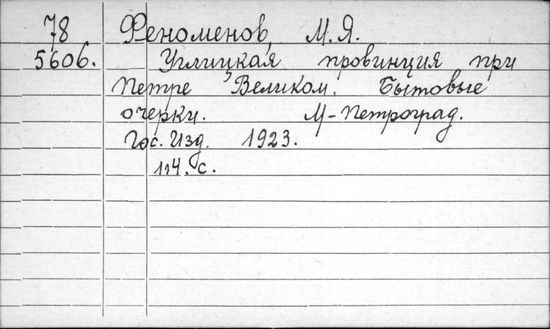 78 Феноменов, М.Я.
5606. Углицкая провинция при
Петре Великом. Бытовые
очерки. М-Петроград.
Гос. Изд. 1923.
114. с.